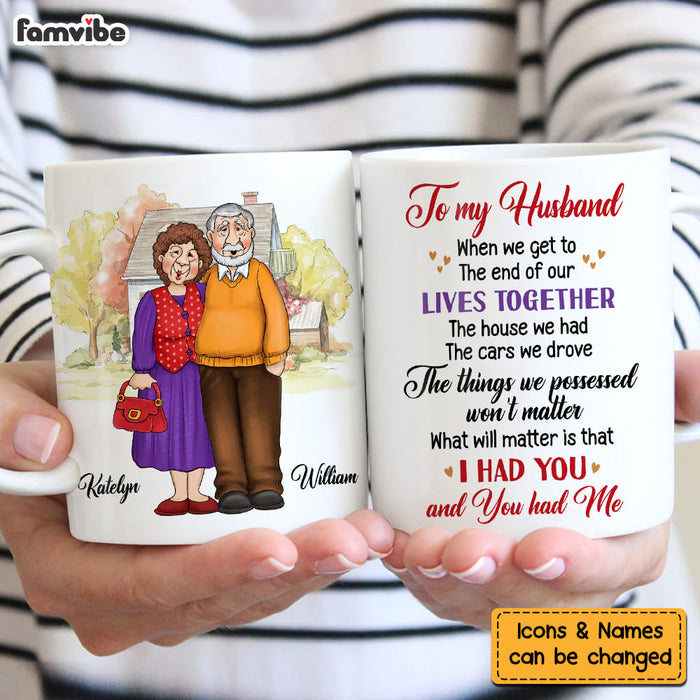 famvibe
Katelyn
William
To my Husband
When we get to
The end of our
LIVES TOGETHER
The house we had
The cars we drove
The things we possessed
won't matter
What will matter is that
I HAD YOU
and You had Me
Icons & Names
can be changed